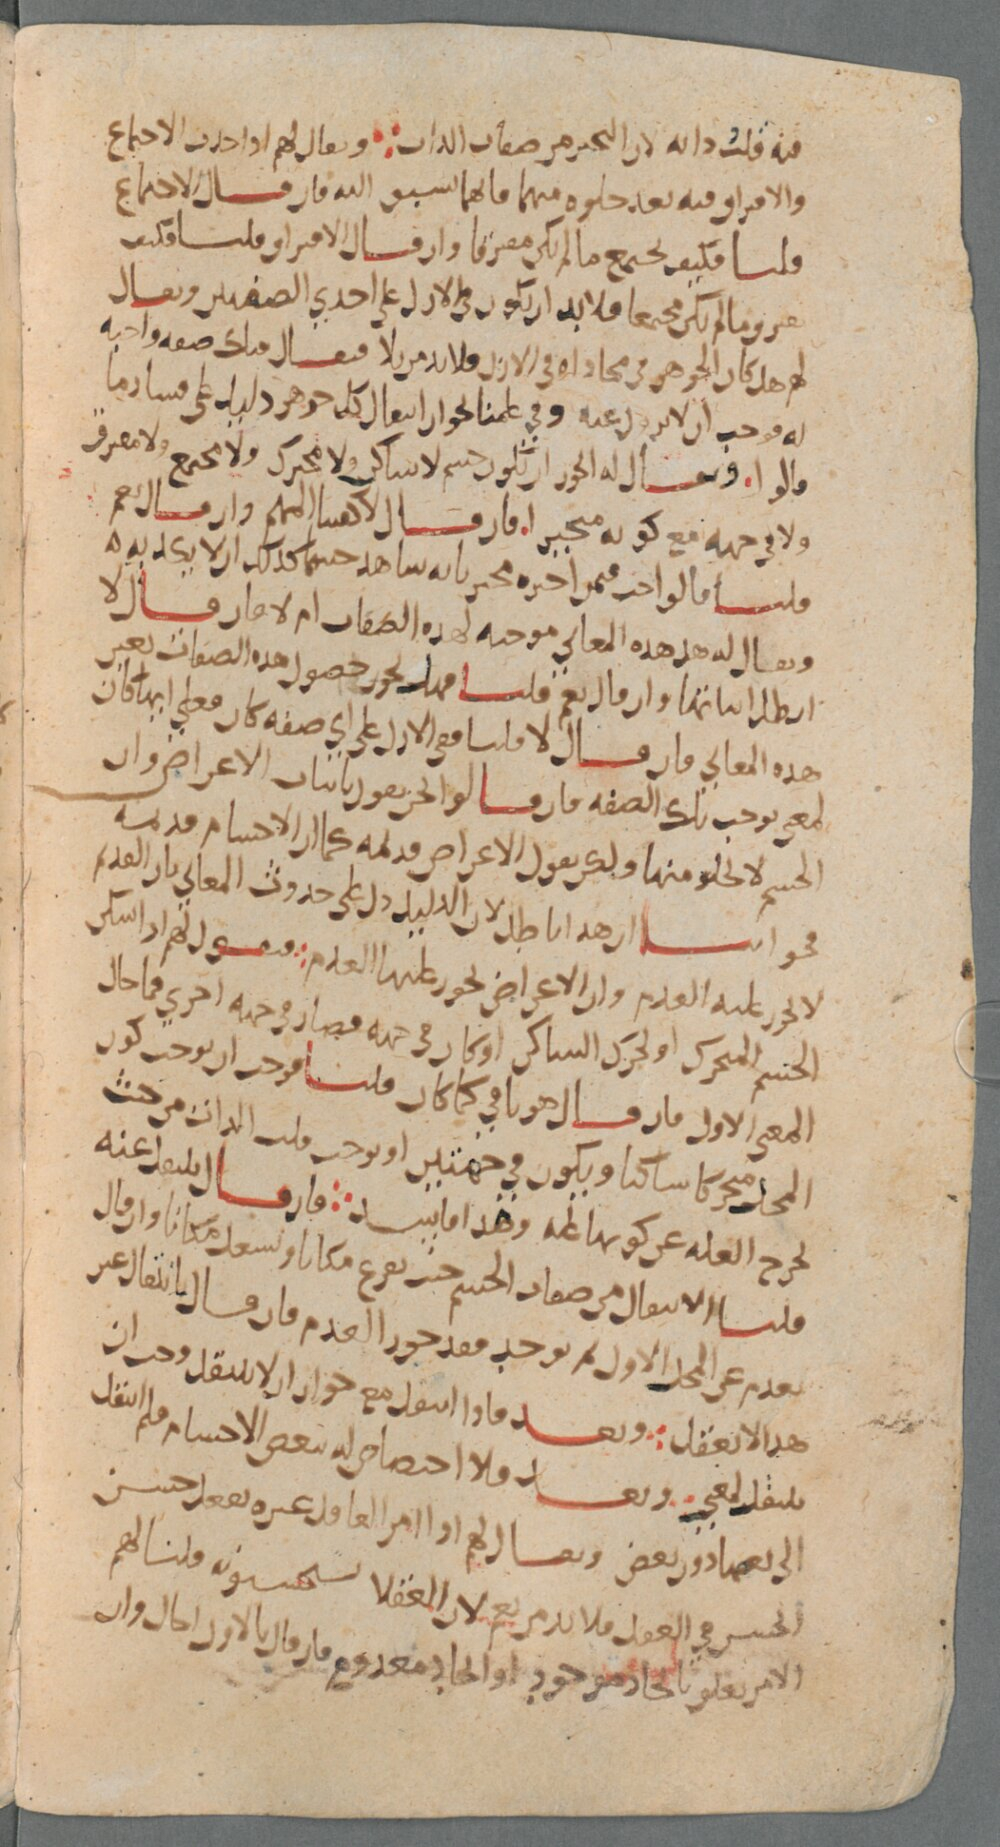 فيه قلت ذاته لان التحيز من صفات الذات ويقال لهم اذا حدث الاجتماع
والافتراق فيه بعد خلوه منهما فايهما يسبق اليه فان قال الاجتماع
قلنا فكيف يجتمع ما لم يكن مفترقا وان قال الافتراق قلنا فكيف
يفترق ما لم يكن مجتمعا فلا بد ان يكون في الازل على احدى الصفتين ويقال
لهم هل كان الجوهر في محاذاة في الازل فلا بد من بلى فيقال فتلك صفة واجبة
له فوجب ان لا يزول عنه وفي علمنا بجواز انتقال كل جوهر دليل على فساد ما
قالوا ويقال له ايجوز ان يكون جسم لا ساكن ولا متحرك ولا مجتمع ولا مفترق
ولا في جهة مع كونه متحيزا فان قال لا كفينا المهم وان قال نعم
قلنا فما الواجب فيمن اخبره مخبر بانه شاهد جسما كذلك ان لا يكذبه
ويقال له هل هذه المعاني موجبة لهذه الصفات ام لا فان قال لا
ابطل اثباتها وان قال نعم قلنا فهل يجوز حصول هذه الصفات بغير
هذه المعاني فان قال لا قلنا ففي الازل على اي صفة كان فعلى ايها كان
لمعنى يوجب تلك الصفة فان قالوا نحن نقول باثبات الاعراض وان
الجسم لا يخلو منها ولكن نقول الاعراض قديمة كما ان الاجسام قديمة
فجوابنا ان هذا باطل لان الدليل دل على حدوث المعاني بان القديم
لا يجوز عليه العدم وان الاعراض يجوز عليها العدم فنقول لهم اذا سكن
الجسم المتحرك او تحرك الساكن او كان في جهة فصار في جهة اخرى فما حال
المعنى الاول فان قال هو باقي كما كان قلنا فوجب ان يوجب كون
المحل متحركا ساكنا ويكون في جهتين او يوجب قلب الذات من حيث
تخرج العلة عن كونها علة وهذا فاسد فان قال ينتقل عنه
قلنا الانتقال من صفات الجسم حيث يفرغ مكانا ويشغل مكانا وان قال
يعدم عن المحل الاول ثم يوجد فقد جوز العدم فان قال بانتقال غير
هذا لا يعقل وبعد فاذا انتقل مع جواز ان لا ينتقل وجب ان
ينتقل لمعنى وبعد فلا اختصاص له ببعض الاجسام فلم انتقل
الى بعضها دون بعض ويقال لهم اذا امر العاقل غيره بفعل حسن
الحسن في العقل فلا بد من نعم لان العقلا يستحسنونه قلنا لهم
الامر يتعلق بايجاد موجود او ايجاد معدوم فان قال بالاول احال وان